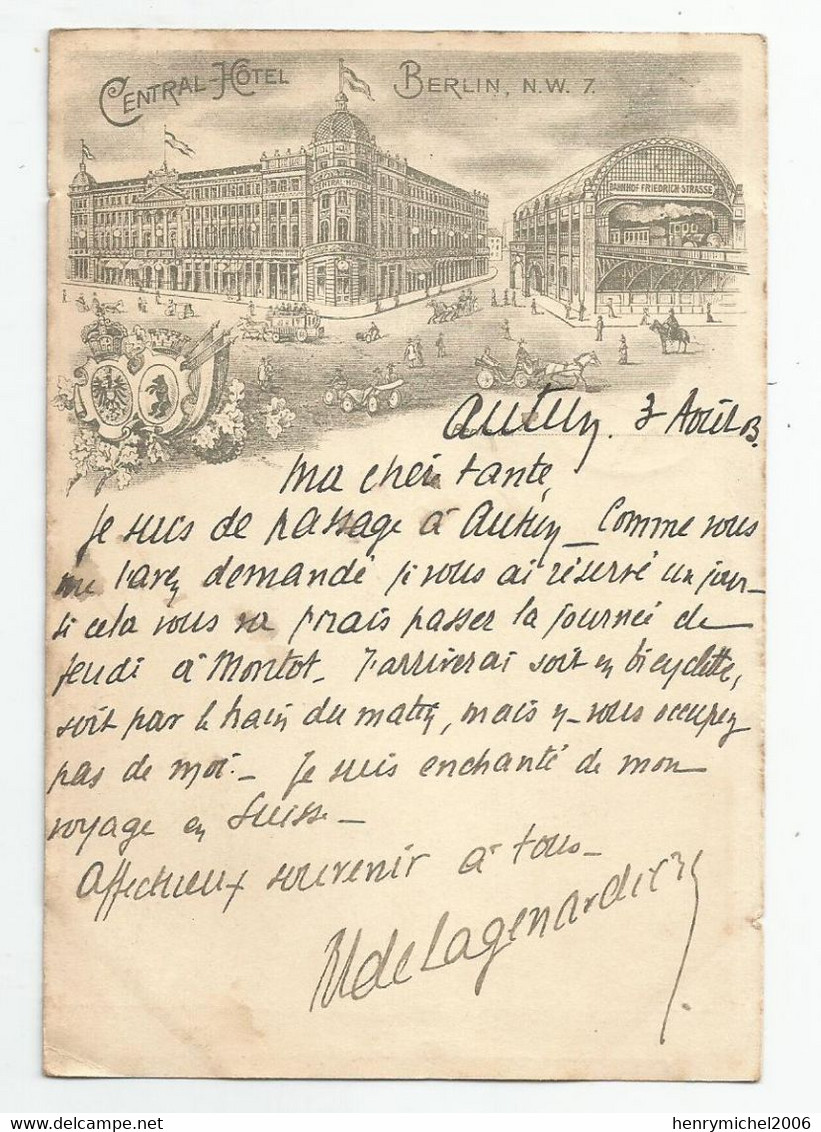 CENTRAL-HÔTEL BERLIN, N.W. 7.
CENTRAL HOTEL
BAHNHOF FRIEDRICH STRASSE
Autun, 3 Août 03.
Ma chère tante,
Je suis de passage à Autun _ Comme vous
me l'avez demandé je vous ai réservé un jour-
si cela vous va j'irais passer la journée de
Jeudi à Montot. J'arriverai soit en bicyclette,
soit par le train du matin, mais n- vous occupez
pas de moi. _ Je suis enchanté de mon
voyage en Suisse _
Affectueux souvenir à tous _
de Lagenardière
henrymichel2006